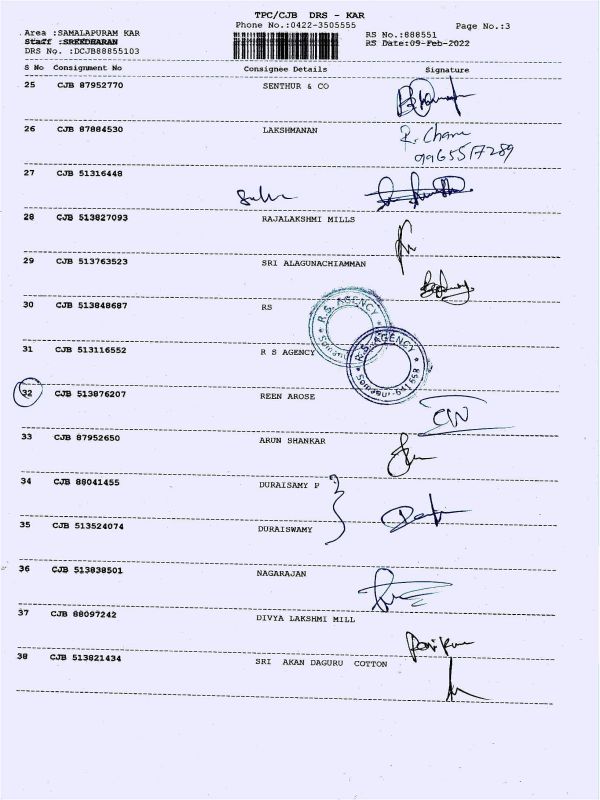 TPC/CJB DRS - KAR
Phone No.:0422-3505555
Page No.:3
Area :SAMALAPURAM KAR
RS No.:888551
Staff :SREEDHARAN
RS Date:09-Feb-2022
DRS No. :DCJB88855103
S No Consignment No Consignee Details Signature
25 CJB 87952770 SENTHUR & CO
26 CJB 87884530 LAKSHMANAN
9965517289
27 CJB 51316448
28 CJB 513827093 RAJALAKSHMI MILLS
29 CJB 513763523 SRI ALAGUNACHIAMMAN
30 CJB 513848687 RS
R.S. AGENCY
31 CJB 513116552 R S AGENCY
R.S. AGENCY
32 CJB 513876207 REEN AROSE
33 CJB 87952650 ARUN SHANKAR
34 CJB 88041455 DURAISAMY P
35 CJB 513524074 DURAISWAMY
36 CJB 513838501 NAGARAJAN
37 CJB 88097242 DIVYA LAKSHMI MILL
38 CJB 513821434 SRI AKAN DAGURU COTTON